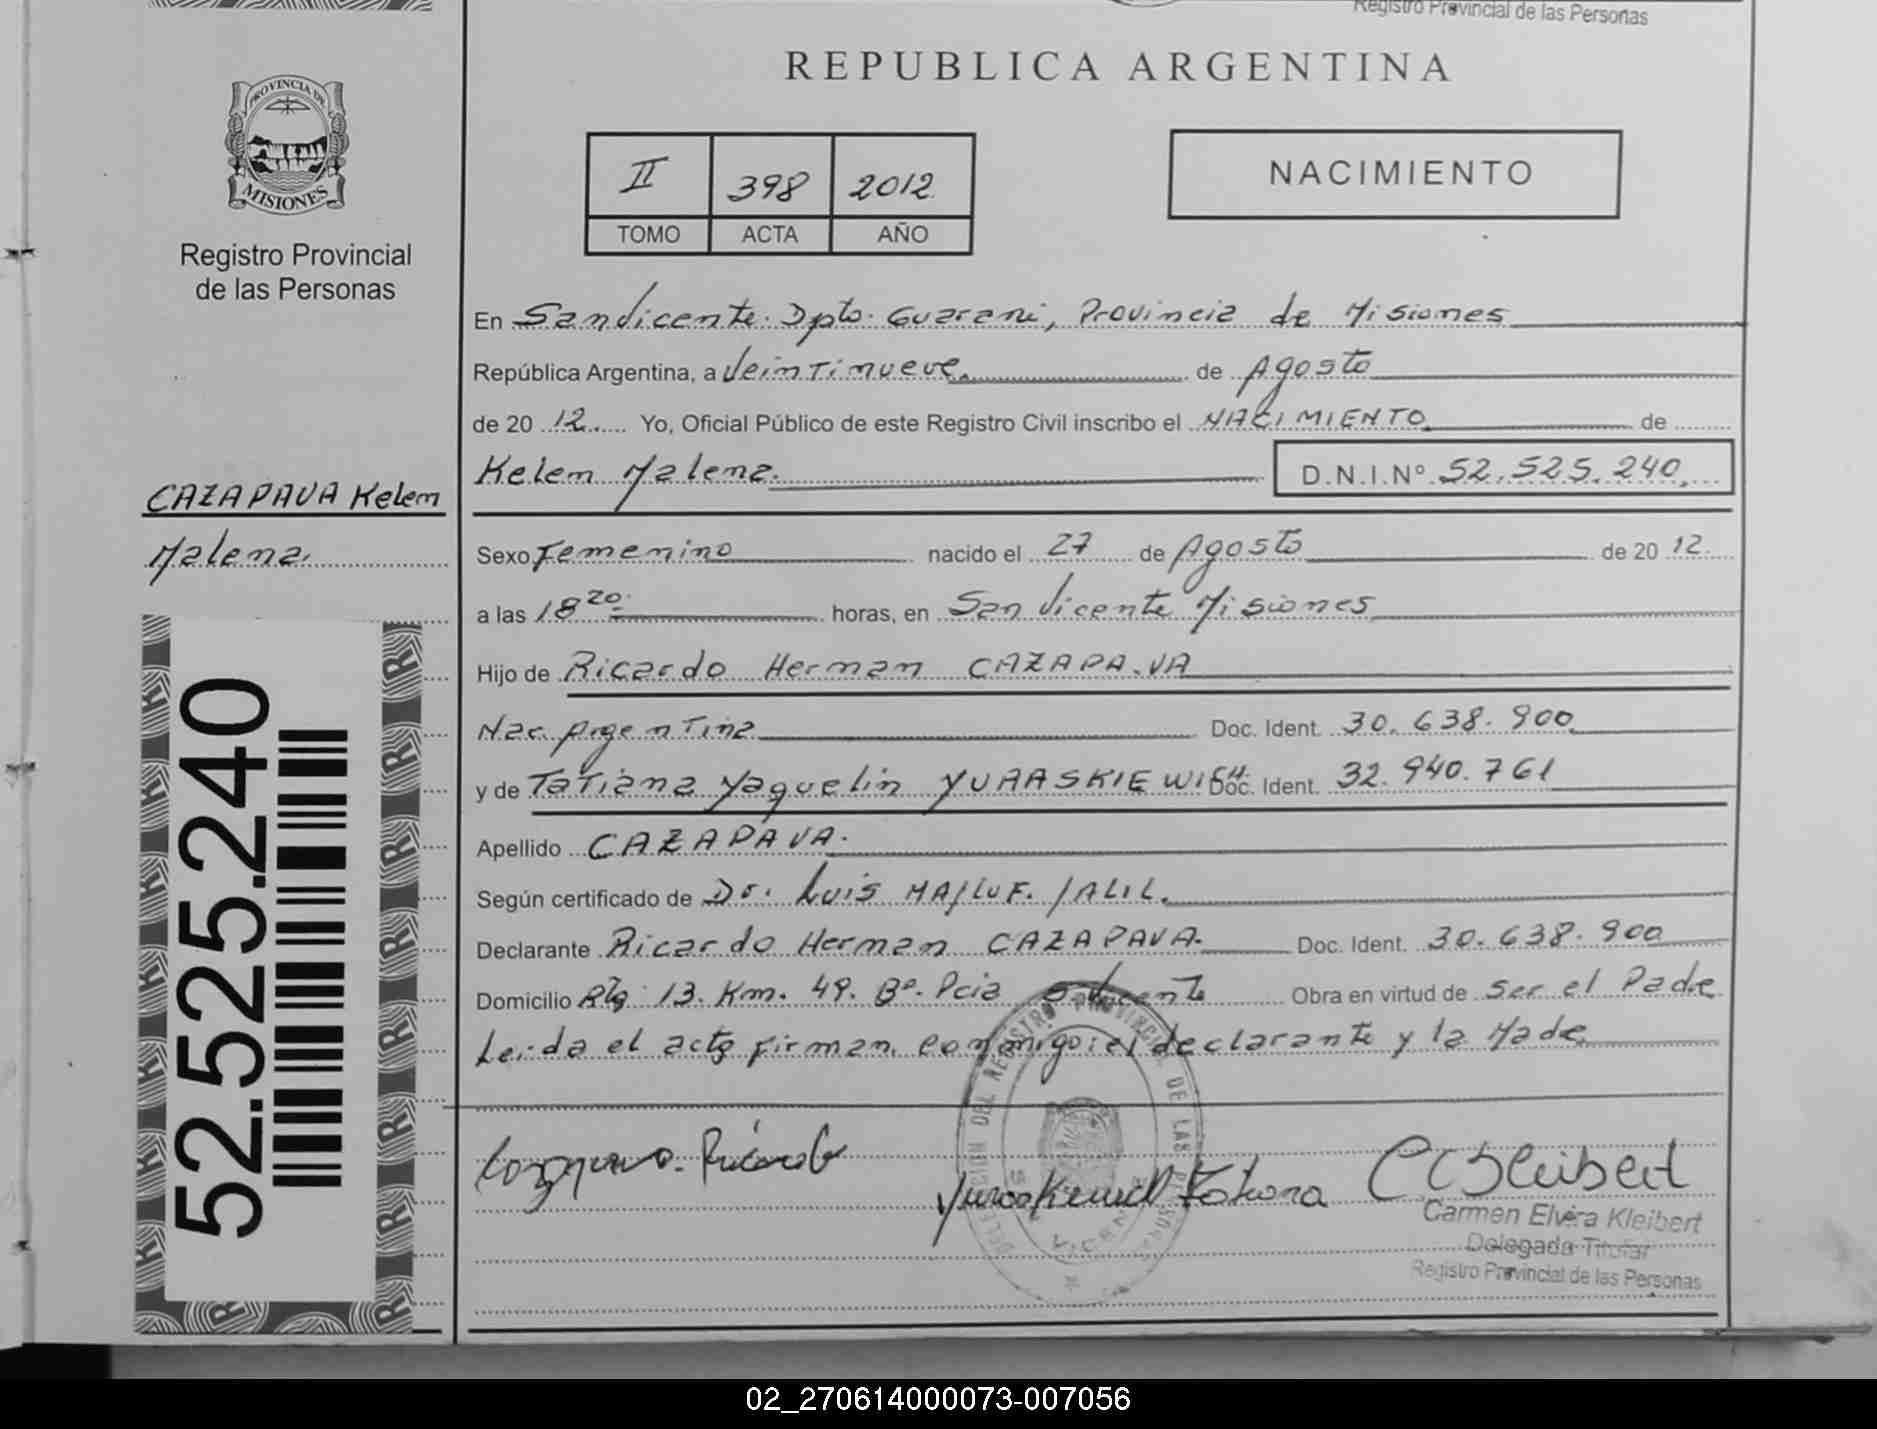 Registro Provincial de las Personas
REPUBLICA ARGENTINA
PROVINCIA DE
MISIONES
Registro Provincial
de las Personas
II 398 2012
TOMO ACTA AÑO
NACIMIENTO
En San Vicente. Dpto. Guarani, Provincia de Misiones
República Argentina, a Veintinueve. de Agosto
de 20 12 Yo, Oficial Público de este Registro Civil inscribo el NACIMIENTO de
Kelem Malena. D.N.I.Nº 52.525.240
CAZAPAVA Kelem
Malena.
Sexo Femenino nacido el 27 de Agosto de 20 12
a las 18 20 horas, en San Vicente Misiones
Hijo de Ricardo Herman CAZAPAVA
Nac Argentina Doc. Ident. 30.638.900
y de Tatiana Yaquelin YURASKIEWICH Doc. Ident. 32.940.761
Apellido CAZAPAVA.
Según certificado de Dr. Luis MAJLUF JALIL.
Declarante Ricardo Herman CAZAPAVA. Doc. Ident. 30.638.900
Domicilio Rta 13. Km. 49. Bº. Pcia S. Vicente Obra en virtud de ser el Padre
Leida el acta firman conmigo: el declarante y la Madre
52.525.240
DELEGACION DEL REGISTRO PROVINCIAL DE LAS PERSONAS
Cazapava Ricardo
Tatiana
C E Kleibert
Carmen Elvira Kleibert
Delegada Titular
Registro Provincial de las Personas
02_270614000073-007056